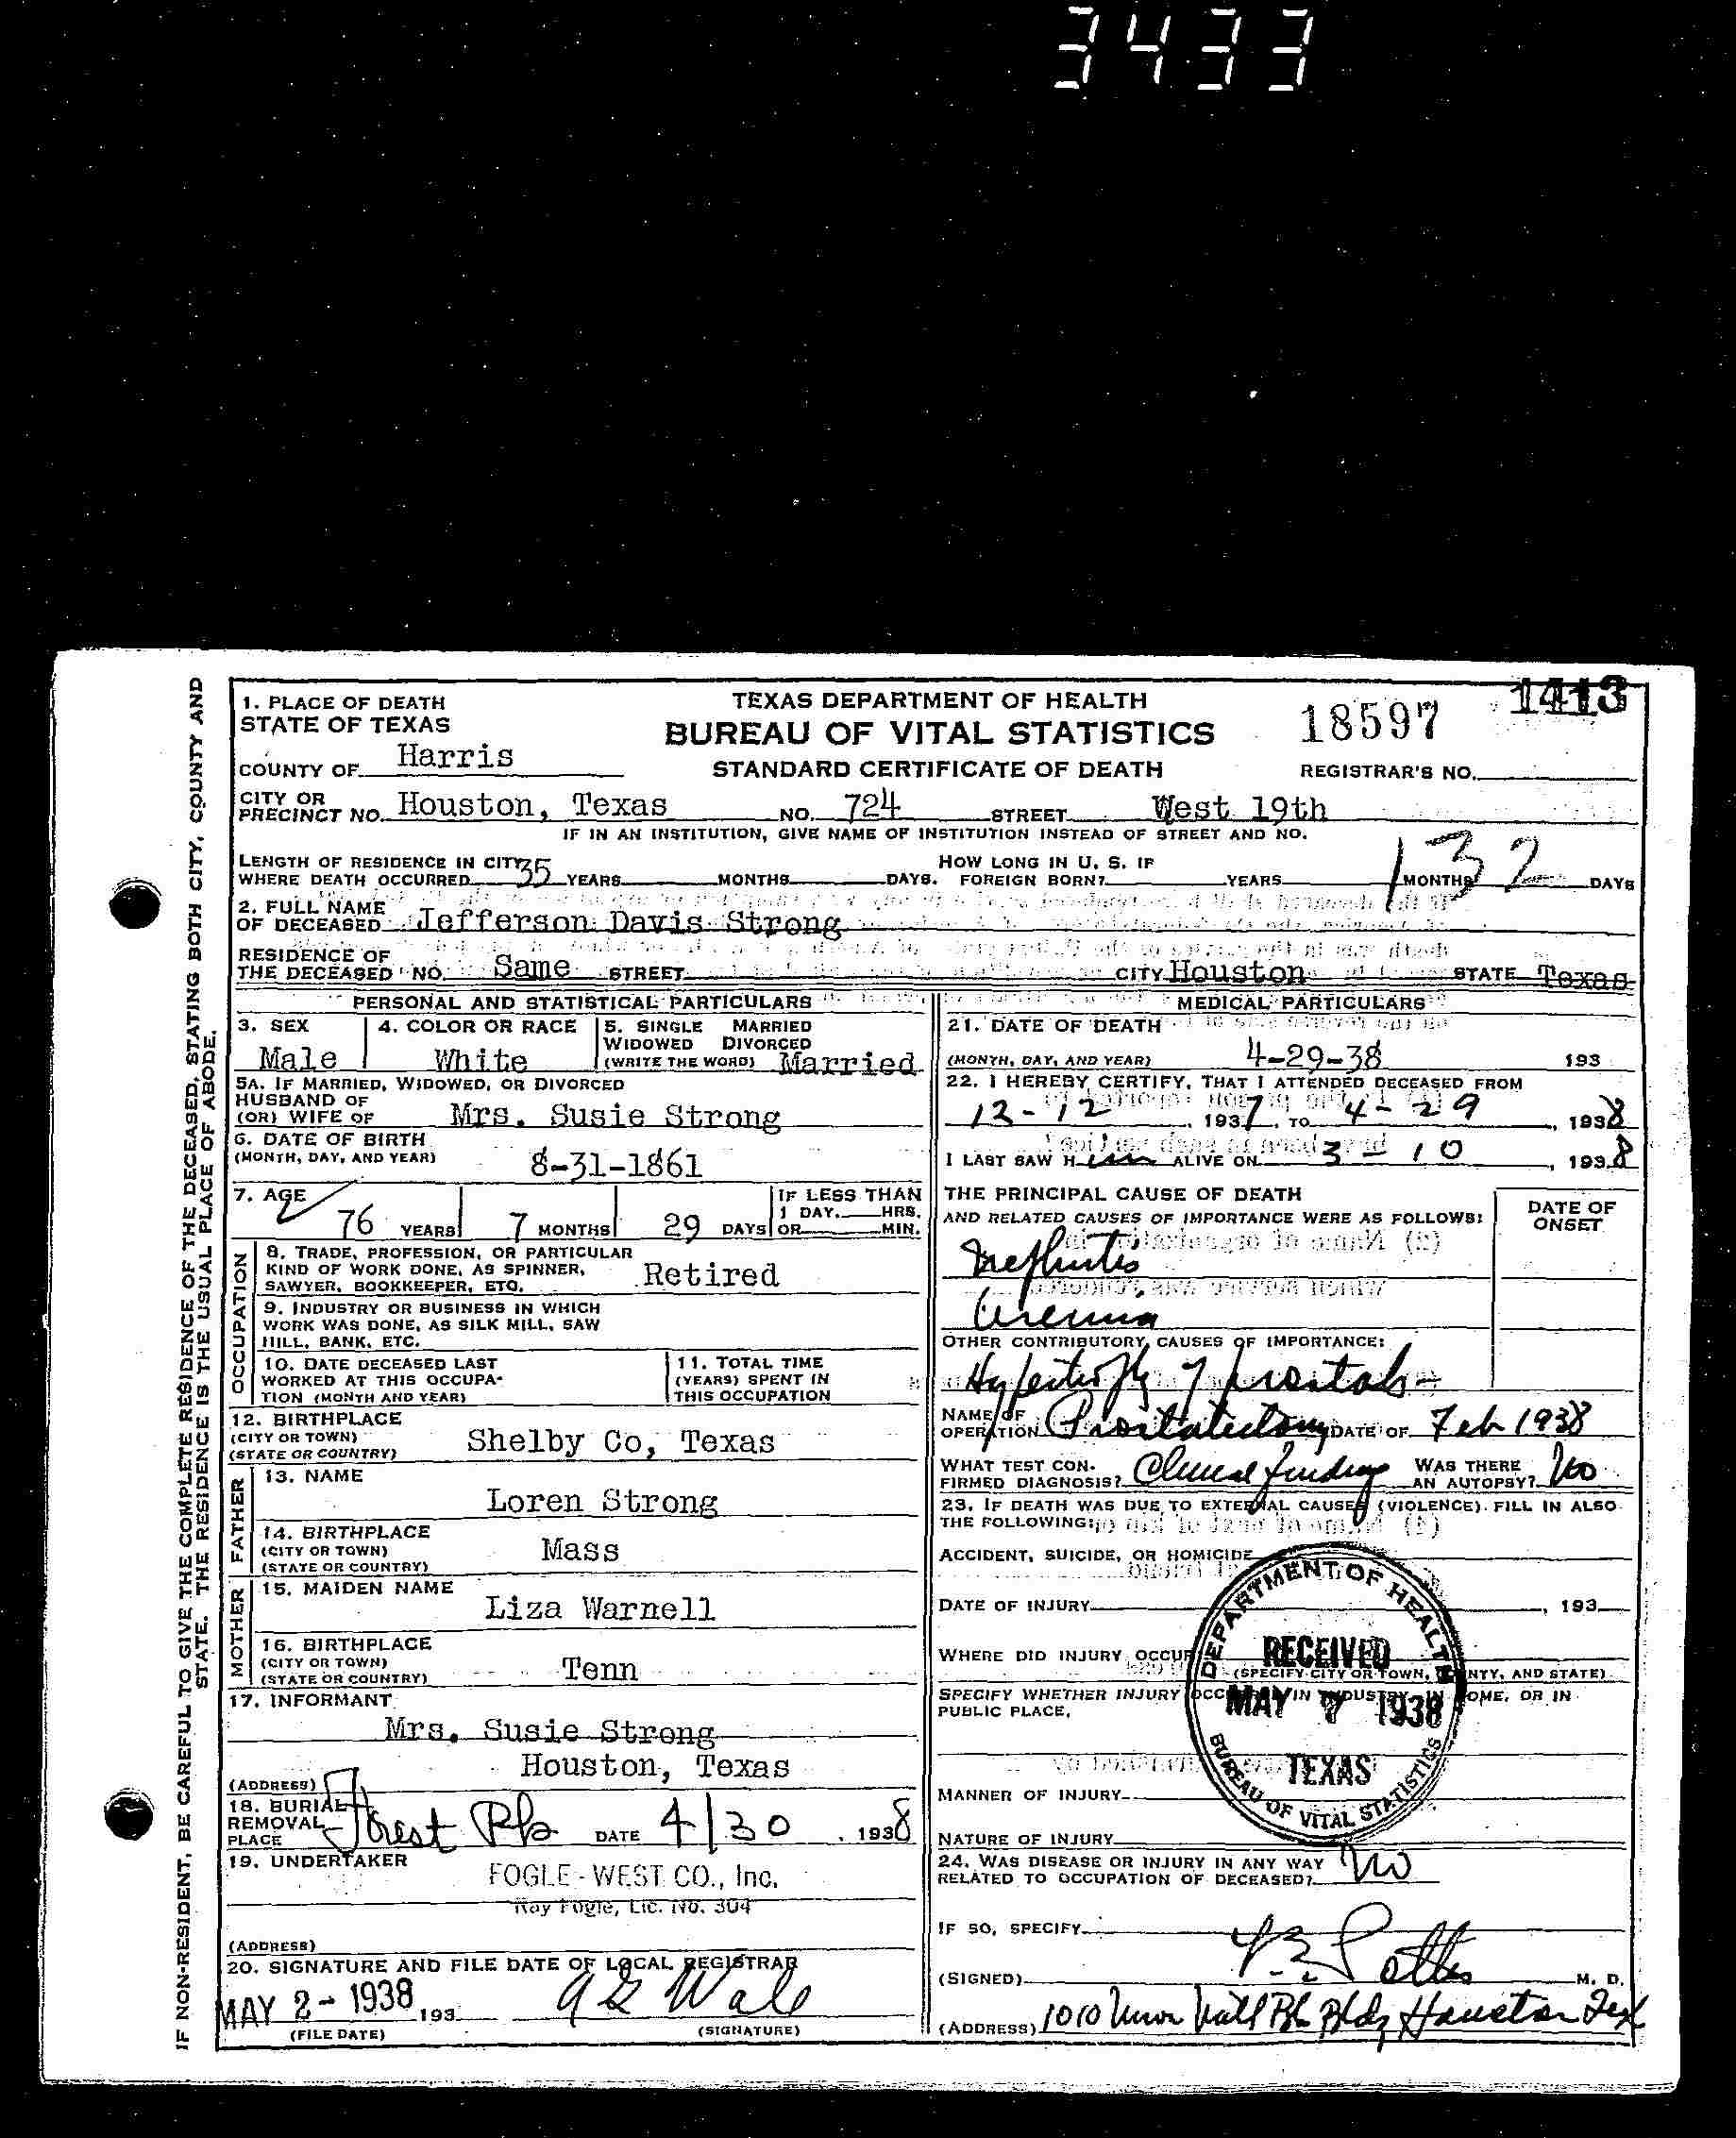 3433
IF NON-RESIDENT, BE CAREFUL TO GIVE THE COMPLETE RESIDENCE OF THE DECEASED, STATING BOTH CITY, COUNTY AND
STATE. THE RESIDENCE IS THE USUAL PLACE OF ABODE.
1. PLACE OF DEATH
STATE OF TEXAS
COUNTY OF Harris
TEXAS DEPARTMENT OF HEALTH
BUREAU OF VITAL STATISTICS
STANDARD CERTIFICATE OF DEATH
18597
1413
REGISTRAR'S NO.
CITY OR PRECINCT NO. Houston, Texas NO. 724 STREET West 19th
IF IN AN INSTITUTION, GIVE NAME OF INSTITUTION INSTEAD OF STREET AND NO.
132
LENGTH OF RESIDENCE IN CITY
WHERE DEATH OCCURRED 35 YEARS MONTHS DAYS. HOW LONG IN U. S. IF FOREIGN BORN? YEARS MONTHS DAYS
2. FULL NAME
OF DECEASED Jefferson Davis Strong
RESIDENCE OF
THE DECEASED NO. Same STREET CITY Houston STATE Texas
PERSONAL AND STATISTICAL PARTICULARS
3. SEX Male
4. COLOR OR RACE White
5. SINGLE MARRIED
WIDOWED DIVORCED
(WRITE THE WORD) Married
5A. IF MARRIED, WIDOWED, OR DIVORCED
HUSBAND OF
(OR) WIFE OF Mrs. Susie Strong
6. DATE OF BIRTH
(MONTH, DAY, AND YEAR) 8-31-1861
7. AGE 76 YEARS 7 MONTHS 29 DAYS
IF LESS THAN
1 DAY, HRS.
OR MIN.
OCCUPATION
8. TRADE, PROFESSION, OR PARTICULAR
KIND OF WORK DONE, AS SPINNER,
SAWYER, BOOKKEEPER, ETC. Retired
9. INDUSTRY OR BUSINESS IN WHICH
WORK WAS DONE, AS SILK MILL, SAW
MILL, BANK, ETC.
10. DATE DECEASED LAST
WORKED AT THIS OCCUPA-
TION (MONTH AND YEAR)
11. TOTAL TIME
(YEARS) SPENT IN
THIS OCCUPATION
12. BIRTHPLACE
(CITY OR TOWN)
(STATE OR COUNTRY) Shelby Co, Texas
FATHER
13. NAME
Loren Strong
14. BIRTHPLACE
(CITY OR TOWN) Mass
(STATE OR COUNTRY)
MOTHER
15. MAIDEN NAME
Liza Warnell
16. BIRTHPLACE
(CITY OR TOWN)
(STATE OR COUNTRY) Tenn
17. INFORMANT
Mrs. Susie Strong
Houston, Texas
(ADDRESS)
18. BURIAL
REMOVAL
PLACE Forest Pk DATE 4/30, 1938
19. UNDERTAKER
FOGLE-WEST CO., Inc.
Ray Fogle, Lic. No. 304
(ADDRESS)
20. SIGNATURE AND FILE DATE OF LOCAL REGISTRAR
MAY 2- 1938 193
(FILE DATE) (SIGNATURE)
MEDICAL PARTICULARS
21. DATE OF DEATH
(MONTH, DAY, AND YEAR) 4-29-38 193
22. I HEREBY CERTIFY, THAT I ATTENDED DECEASED FROM
12-12, 1937, TO 4-29, 1938
I LAST SAW Him ALIVE ON 3-10, 1938
THE PRINCIPAL CAUSE OF DEATH
AND RELATED CAUSES OF IMPORTANCE WERE AS FOLLOWS:
DATE OF
ONSET
Nephritis
Uremia
OTHER CONTRIBUTORY CAUSES OF IMPORTANCE:
Hypertrofy of prostate
NAME OF
OPERATION Prostatectomy DATE OF Feb 1938
WHAT TEST CON-
FIRMED DIAGNOSIS? Clinical findings WAS THERE
AN AUTOPSY? No
23. IF DEATH WAS DUE TO EXTERNAL CAUSES (VIOLENCE) FILL IN ALSO
THE FOLLOWING:
ACCIDENT, SUICIDE, OR HOMICIDE
DATE OF INJURY , 193
WHERE DID INJURY OCCUR
(SPECIFY CITY OR TOWN, COUNTY, AND STATE)
SPECIFY WHETHER INJURY OCCURRED IN INDUSTRY, IN HOME, OR IN
PUBLIC PLACE.
DEPARTMENT OF HEALTH
RECEIVED
MAY 7 1938
TEXAS
BUREAU OF VITAL STATISTICS
MANNER OF INJURY
NATURE OF INJURY
24. WAS DISEASE OR INJURY IN ANY WAY
RELATED TO OCCUPATION OF DECEASED? No
IF SO, SPECIFY
(SIGNED) M. D.
(ADDRESS) 1010 Bldg Houston Tex